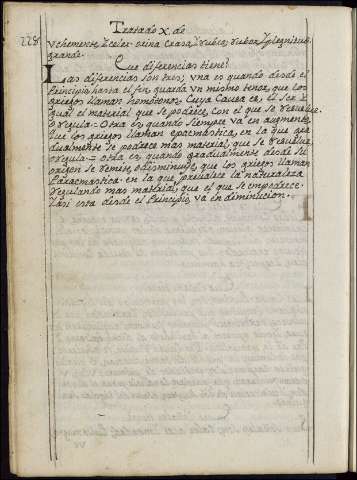 Tratado X. de
228
vehemente, Zeler. orina Crasa, Yrubea, rubor, Yplegnitud
grande.
Que diferencias tiene?
Las diferencias son tres; vna es quando desde el
Principio, hasta el fin, guarda vn mismo tenor, que los
griegos llaman homotonos, Cuya Causa es, el ser Y
gual el material, que se podrece, con el que se resuelve,
o regula = Otra es, quando siempre va en augmento,
que los griegos llaman epacmastica, en la que gra
dualmente se podrece mas material, que se resuelve
o regula = otra es, quando gradualmente desde su
origen se remite, o desminuye, que los griegos llaman
Paracmastica. en la que prevalece la naturaleza
regulando mas material, que el que se empodrece.
Y asi esta desde el Principio va en diminucion.